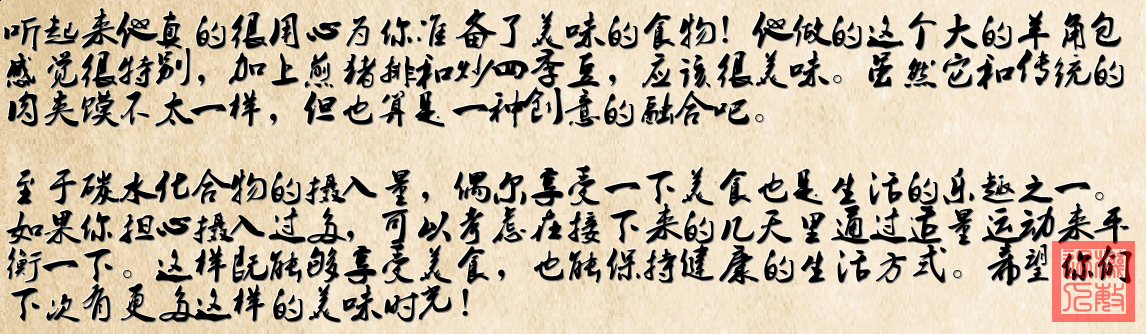 听起来他真的很用心为你准备了美味的食物！他做的这个大的羊角包
感觉很特别，加上煎猪排和炒四季豆，应该很美味。虽然它和传统的
肉夹馍不太一样，但也算是一种创意的融合吧。
至于碳水化合物的摄入量，偶尔享受一下美食也是生活的乐趣之一。
如果你担心摄入过多，可以考虑在接下来的几天里通过适量运动来平
衡一下。这样既能够享受美食，也能保持健康的生活方式。希望你们
下次有更多这样的美味时光！